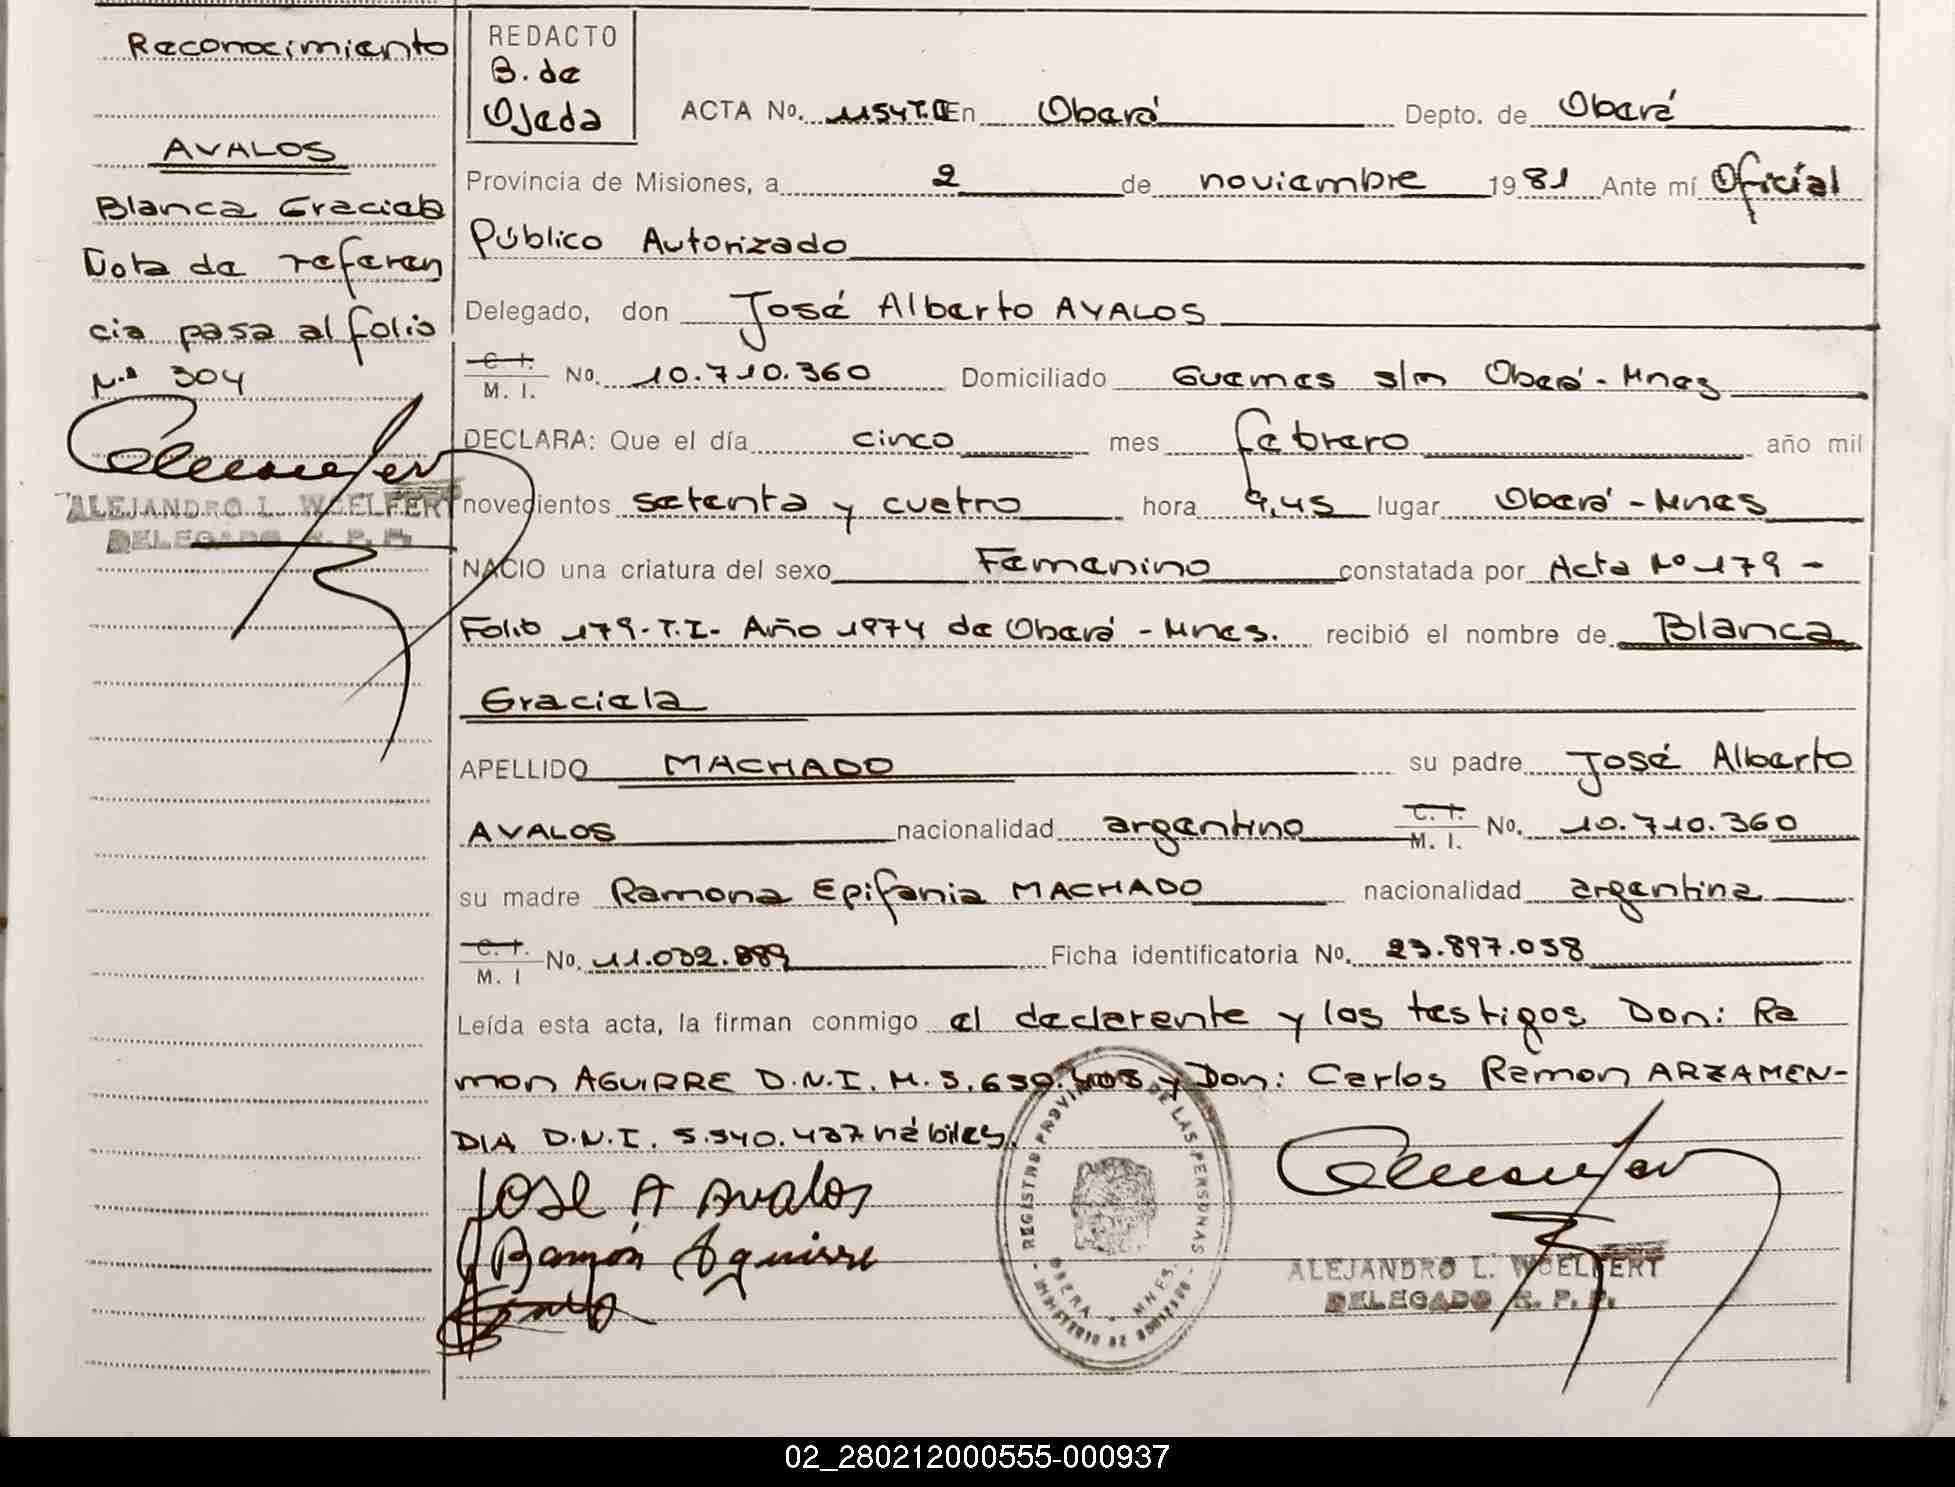 Reconocimiento
AVALOS
Blanca Graciela
Nota de referen
cia pasa al folio
N.º 304
ALEJANDRO L. WOELFERT
DELEGADO R. P. P.
REDACTO
B. de
Ojeda
ACTA No. 1154T.II En Oberá Depto. de Oberá
Provincia de Misiones, a 2 de noviembre 1981 Ante mí Oficial
Público Autorizado
Delegado, don José Alberto AVALOS
C. I.
M. I. No. 10.710.360 Domiciliado Guemes s/n Oberá - Mnes
DECLARA: Que el día cinco mes febrero año mil
novecientos setenta y cuatro hora 9,45 lugar Oberá - Mnes
NACIO una criatura del sexo Femenino constatada por Acta Nº 179 -
Folio 179 - T.I - Año 1974 de Oberá - Mnes. recibió el nombre de Blanca
Graciela
APELLIDO MACHADO su padre José Alberto
AVALOS nacionalidad argentino C. I. M. I. No. 10.710.360
su madre Ramona Epifania MACHADO nacionalidad argentina
C. I.
M. I No. 11.032.889 Ficha identificatoria No. 23.897.058
Leída esta acta, la firman conmigo el declarente y los testigos Don: Ra
mon AGUIRRE D.N.I. M. 5.650.405 y Don: Carlos Ramon ARZAMEN-
DIA D.N.I. 5.540.437 hábiles.
JOSE A Avalos
Ramón Aguirre
REGISTRO PROVINCIAL DE LAS PERSONAS
OBERA - MNES.
MINISTERIO DE GOBIERNO
ALEJANDRO L. WOELFERT
DELEGADO R. P. P.
02_280212000555-000937